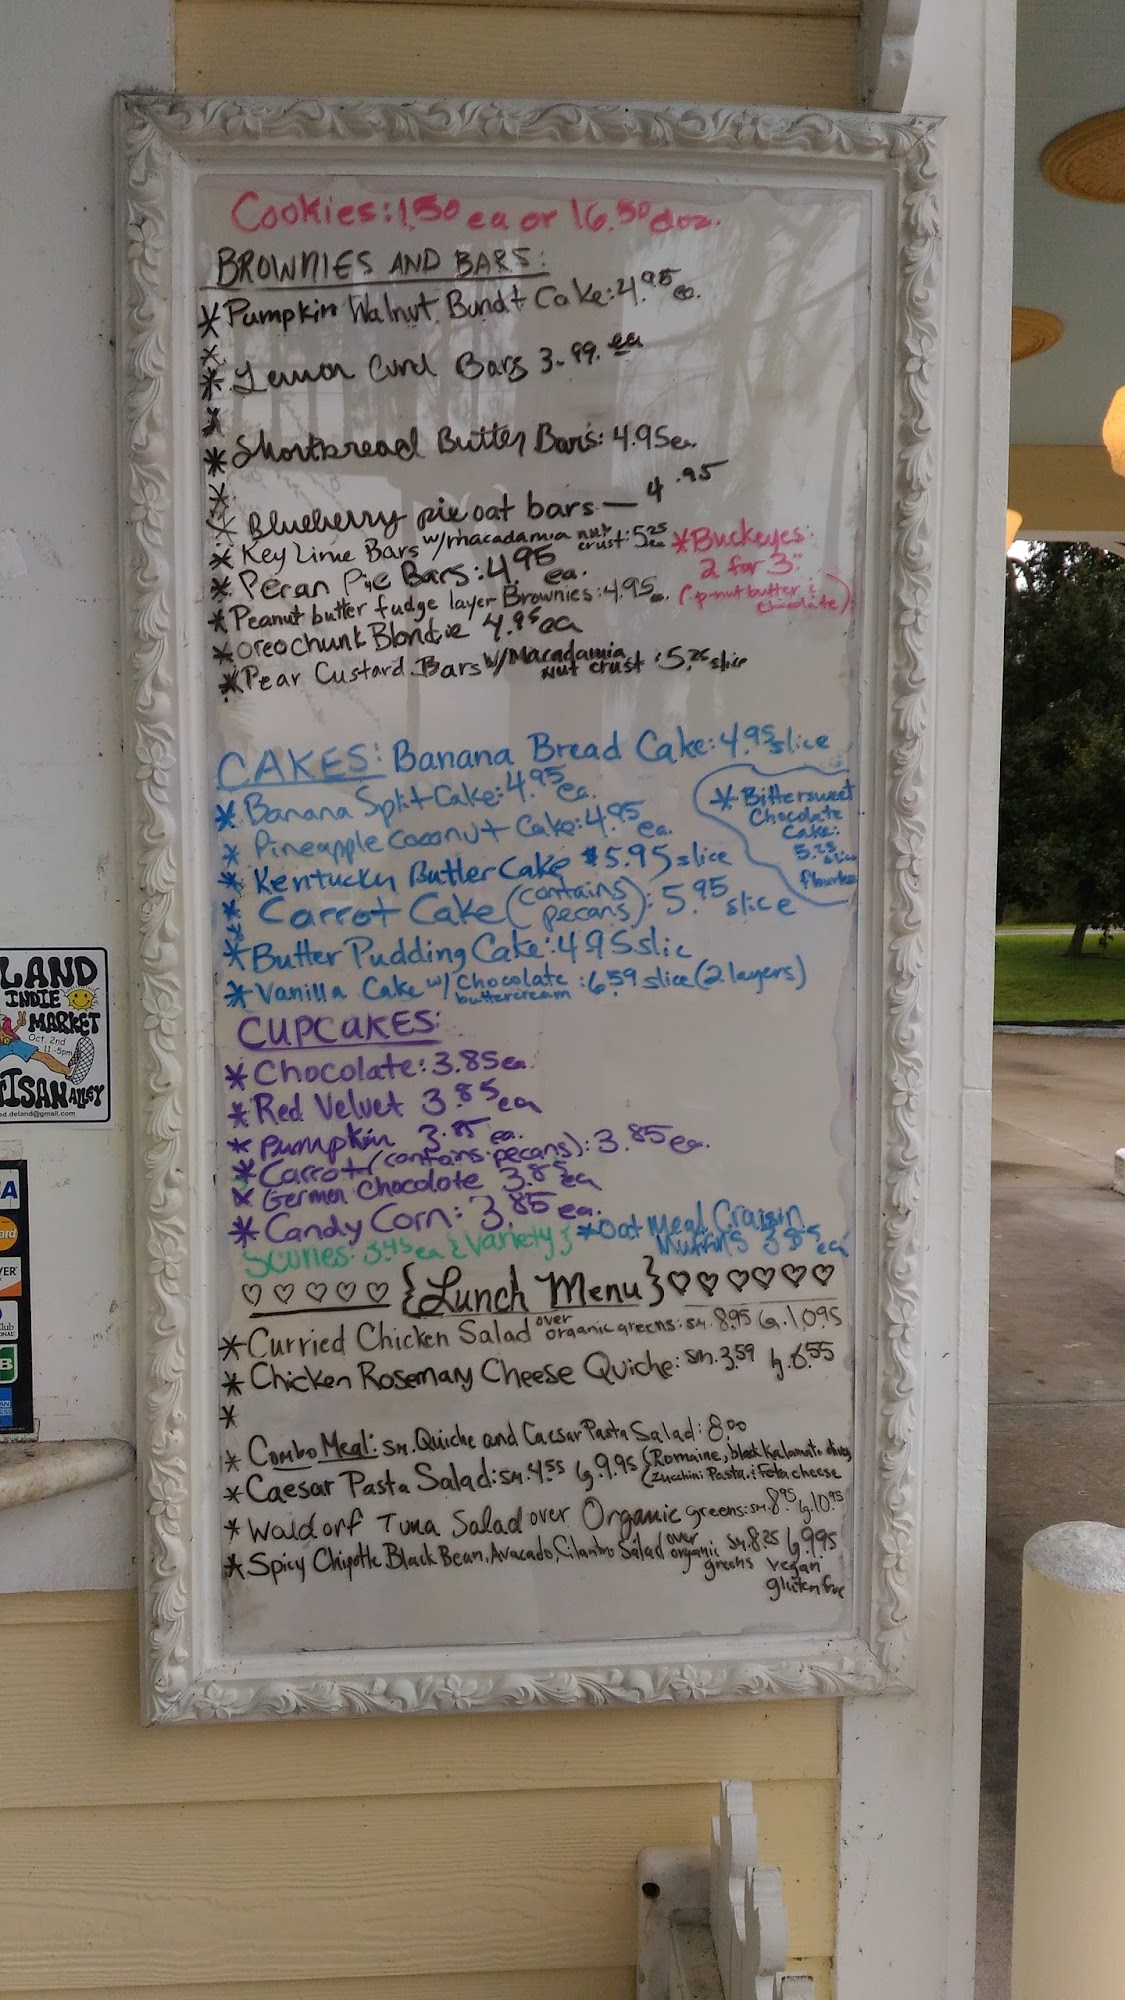 Cookies: 1.50 ea or 16.50 doz.
BROWNIES AND BARS:
* Pumpkin Walnut Bundt Cake: 4.95 ea.
*
* Lemon Curd Bars 3.99. ea
*
* Shortbread Butter Bars: 4.95 ea.
*
* Blueberry pie oat bars — 4.95
* Key Lime Bars w/macadamia nut crust: 5.25 ea
* Pecan Pie Bars: 4.95 ea.
* Peanut butter fudge layer Brownies: 4.95 ea.
* oreo chunk Blondie 4.95 ea
* Pear Custard Bars w/Macadamia Nut crust: 5.25 slice
* Buckeyes:
2 for 3.
(p-nut butter &
chocolate)
CAKES: Banana Bread Cake: 4.95 slice
* Banana Split Cake: 4.95 ea.
* Pineapple Coconut Cake: 4.95 ea.
* Kentucky Butter Cake $5.95 slice
* Carrot Cake (contains pecans): 5.95 slice
*
* Butter Pudding Cake: 4.95 slic
* Vanilla Cake w/ Chocolate buttercream: 6.59 slice (2 layers)
* Bittersweet
Chocolate
Cake:
5.25 slice
CUPCAKES:
* Chocolate: 3.85 ea.
* Red Velvet 3.85 ea
* Pumpkin 3.85 ea.
* Carrot (contains pecans): 3.85 ea.
* German Chocolate 3.85 ea
* Candy Corn: 3.85 ea.
Scones: 3.45 ea {Variety}
* Oat Meal Craisin
Muffins 3.85 ea
{Lunch Menu}
* Curried Chicken Salad over organic greens: sm. 8.95 lg. 10.95
* Chicken Rosemary Cheese Quiche: sm. 3.59 lg. 6.55
*
* Combo Meal: sm. Quiche and Caesar Pasta Salad: 8.00
* Caesar Pasta Salad: sm. 4.55 lg 9.95 (Romaine, black Kalamata olives,
zucchini Pasta & Feta cheese
* Waldorf Tuna Salad over Organic greens: sm. 8.95 lg. 10.95
* Spicy Chipotle Black Bean, Avocado, Cilantro Salad over organic greens sm. 8.25 lg 9.95
vegan
gluten free
LAND
INDIE
MARKET
Oct. 2nd
11-5pm
ISAN ALLEY
ed.deland@gmail.com